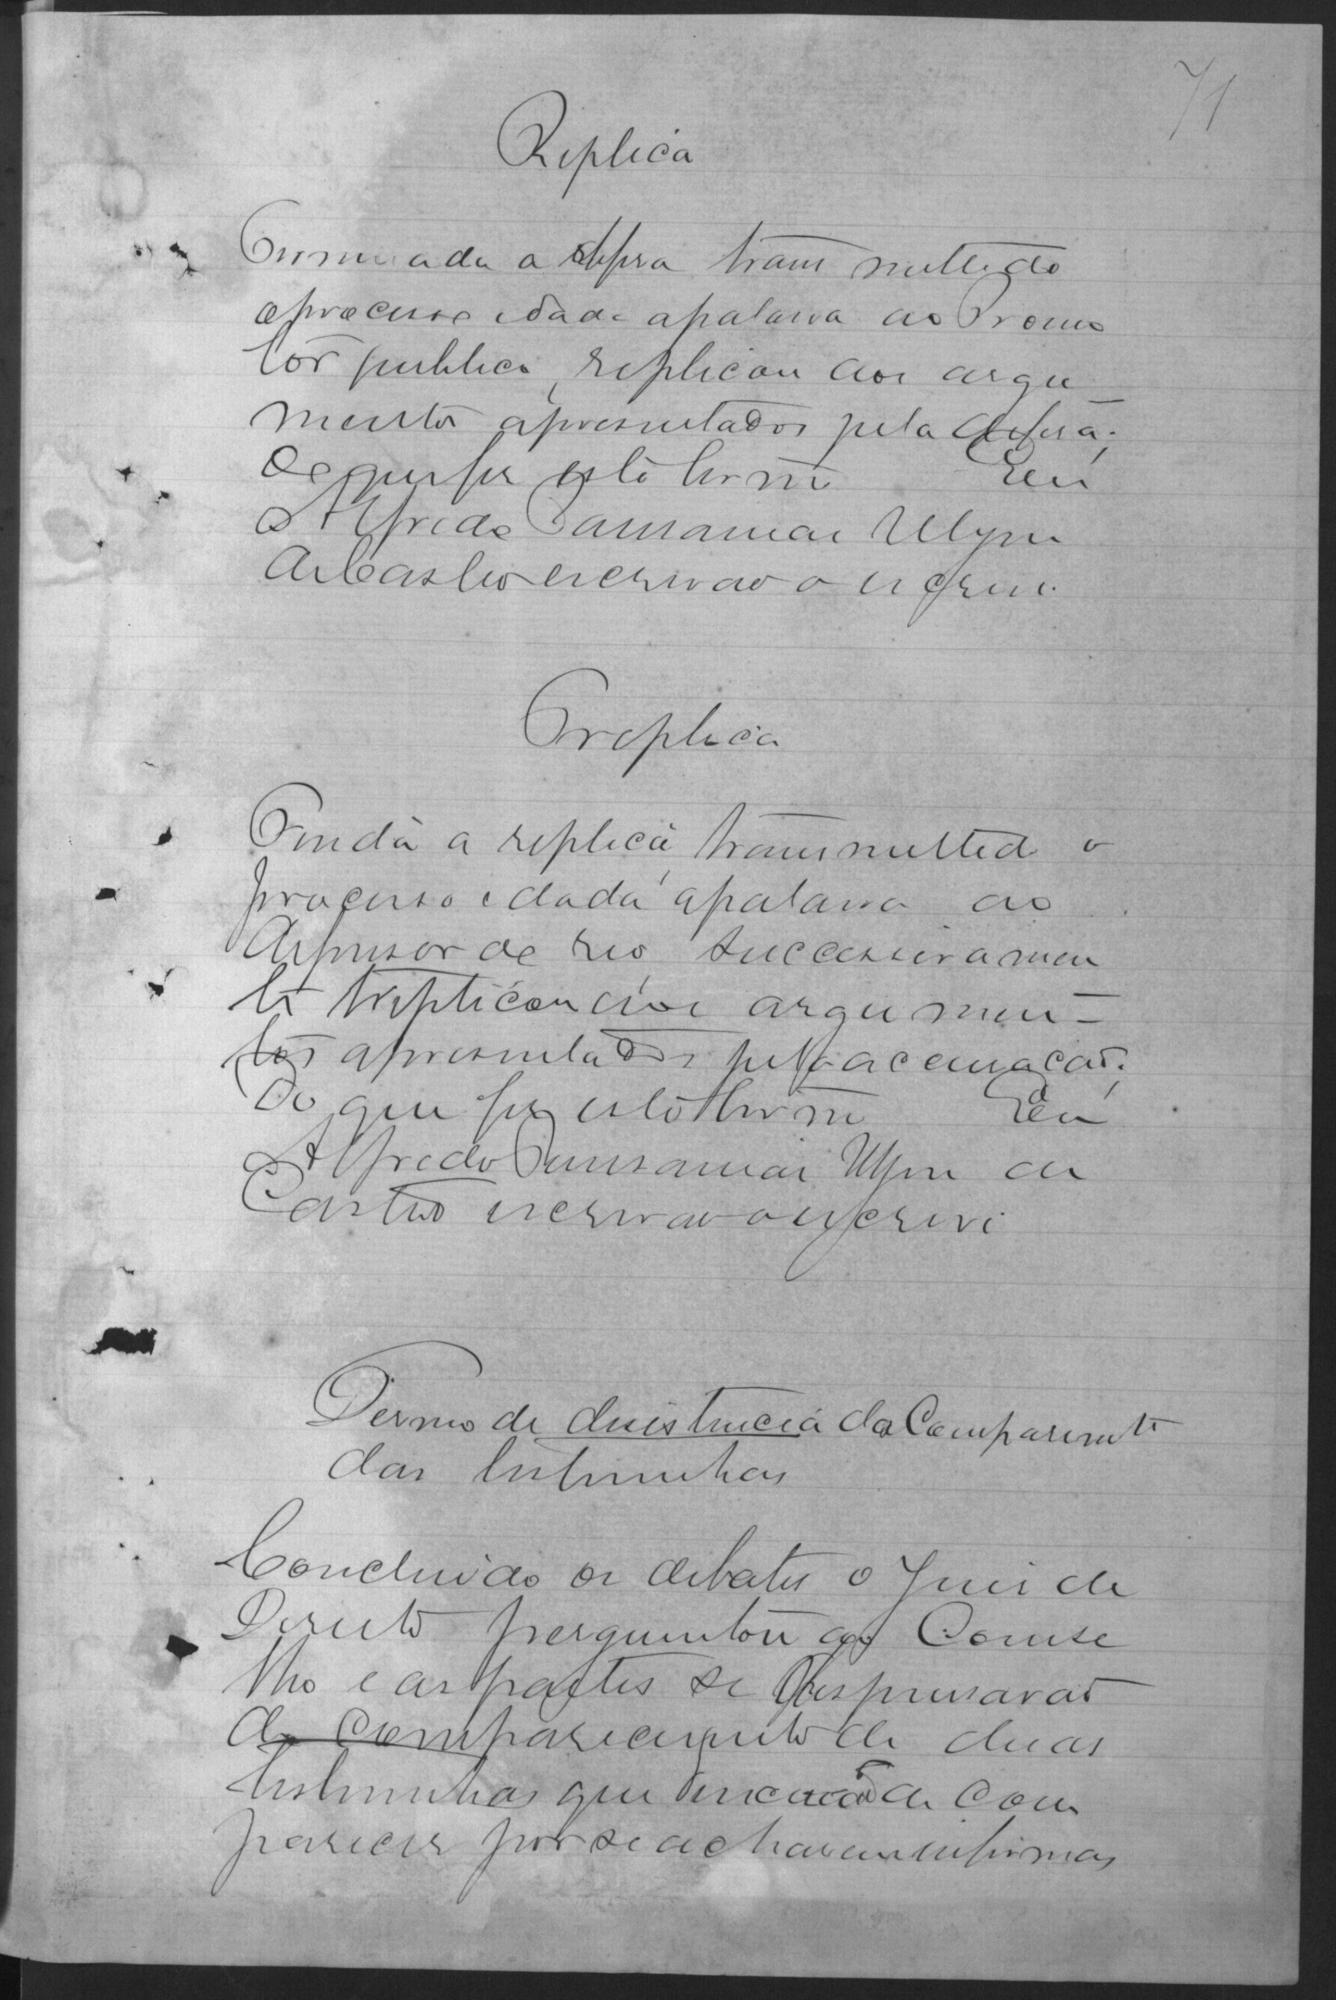 71
Replica
Terminada a defesa transmettido
o processo e dada a palavra ao Promo
tor publico, replicou aos argu
mentos apresentados pela defesa;
De que fiz este termo Eu
Alfredo Pausanias Ulysses
de Castro escrivão o escrevi.
Treplica
Finda a replica, transmettido o
processo e dada a palavra ao
Defensor do reo, successivamen
te treplicou aos argumen=
tos apresentados pela accusação;
Do que fiz este termo Eu
Alfredo Pausanias Ulysses de
Castro escrivão o escrevi
Termo de desistencia do Comparecimto
das testemunhas
Concluido os debates o Juis de
Direito perguntou ao Conse
lho e as partes se dispensavão
do comparecimento de duas
testemunhas que de com
parecer por se acharem enfermas